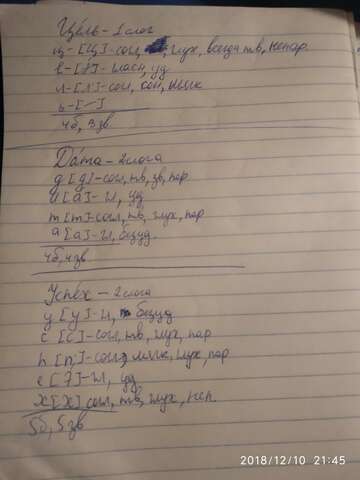 Цель - 1 слог
ц - [ц] - согл, глух, всегда тв, непар.
е - [э] - гласн, уд
л - [л'] - согл, сон, мягк
ь - [-]
4б, 3зв
Да́та - 2 слога
д [д] - согл, тв, зв, пар
а [а] - гл, уд
т [т] - согл, тв, глух, пар
а [а] - гл, безуд.
4б, 4зв
Успех - 2 слога
у [у] - гл, безуд
с [с] - согл, тв, глух, пар
п [п,] - согл, мягк, глух, пар
е [э] - гл, уд,
х [х] согл, тв, глух, неп.
5б, 5зв
2018/12/10 21:45